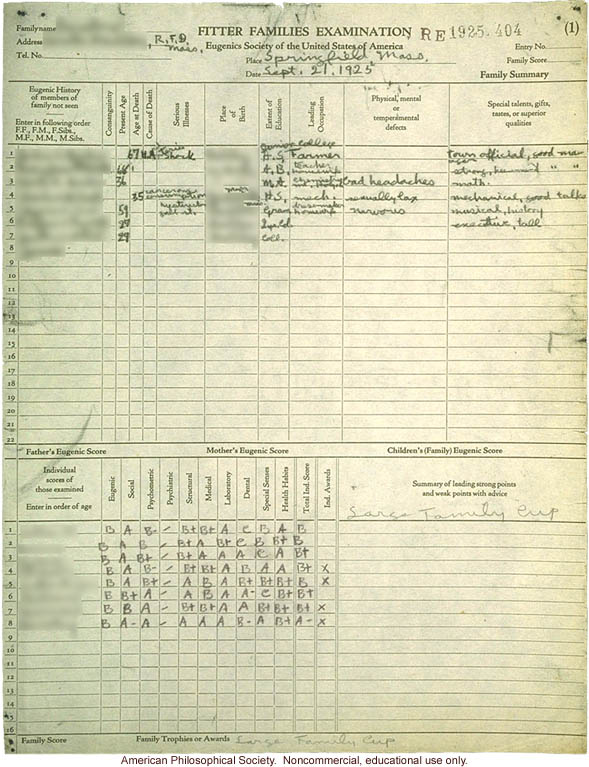 Family name
FITTER FAMILIES EXAMINATION RE 1925.404 (1)
Address R.F.D. Mass.
Eugenics Society of the United States of America
Entry No.
Tel. No.
Place Springfield, Mass.
Family Score
Date Sept. 21, 1925
Family Summary
Eugenic History of members of family not seen
Enter in following order F.F., F.M., F.Sibs., M.F., M.M., M.Sibs.
Consanguinity
Present Age
Age at Death
Cause of Death
Serious Illnesses
Place of Birth
Extent of Education
Leading Occupation
Physical, mental or temperamental defects
Special talents, gifts, tastes, or superior qualities
1 67 Shock H.S. Farmer town official, good
2 A.B. teacher strong,
3 M.A. chemistry bad headaches math.
4 35 H.S. mech. sexually lax mechanical, good talks
5 59 Gram. nervous musical, history
6 executive, tall
7 Coll.
8
9
10
11
12
13
14
15
16
17
18
19
20
21
22
Father's Eugenic Score Mother's Eugenic Score Children's (Family) Eugenic Score
Individual scores of those examined
Enter in order of age
Eugenic
Social
Psychometric
Psychiatric
Structural
Medical
Laboratory
Dental
Special Senses
Health Habits
Total Ind. Score
Ind. Awards
Summary of leading strong points and weak points with advice
Large Family Cup
1 B A B- - B+ B+ A C B A B
2 B A B - B+ A B+ C B B+ B
3 B A B+ - B+ A A A C A B+
4 B A B- - B+ B+ A B A A B+ x
5 B A B+ - A B A B+ B+ B+ B x
6 B B+ A - A B A A- C B+ B+
7 B B A - B+ B+ A A B+ B+ B+ x
8 B A- A - A A A B- A B+ A- x
9
10
11
12
13
14
15
16
Family Score Family Trophies or Awards Large Family Cup
American Philosophical Society. Noncommercial, educational use only.